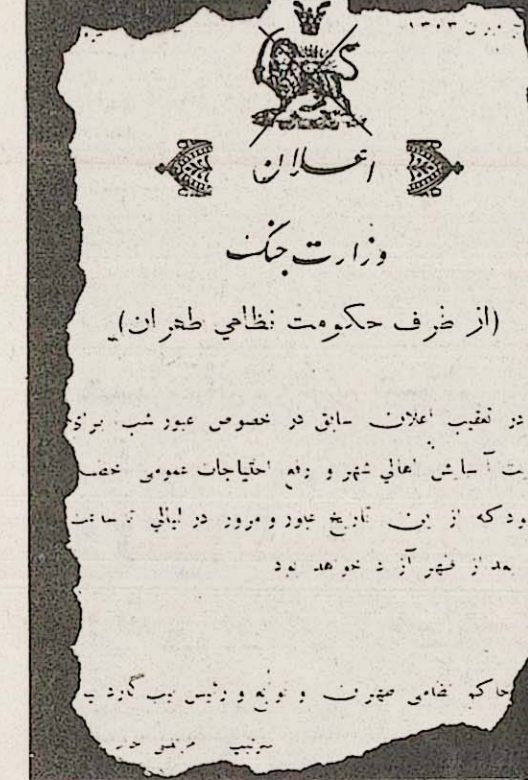 ۱۳۰۳
اعلان
وزارت جنگ
(از طرف حکومت نظامی طهران)
در تعقیب اعلان سابق در خصوص عبور شب برای
آسایش اهالی شهر و رفع احتیاجات عمومی
که از این تاریخ عبور و مرور در لیالی تا ساعت
بعد از ظهر آزاد خواهد بود
حاکم نظامی طهران و توابع و رئیس
سرتیپ مرتضی